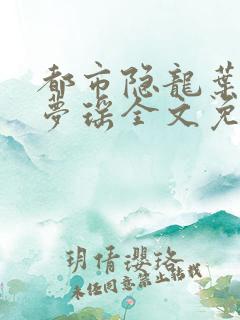 都市隐龙叶
梦瑶全文免
玥倩瓔珞
未经同意禁止转载